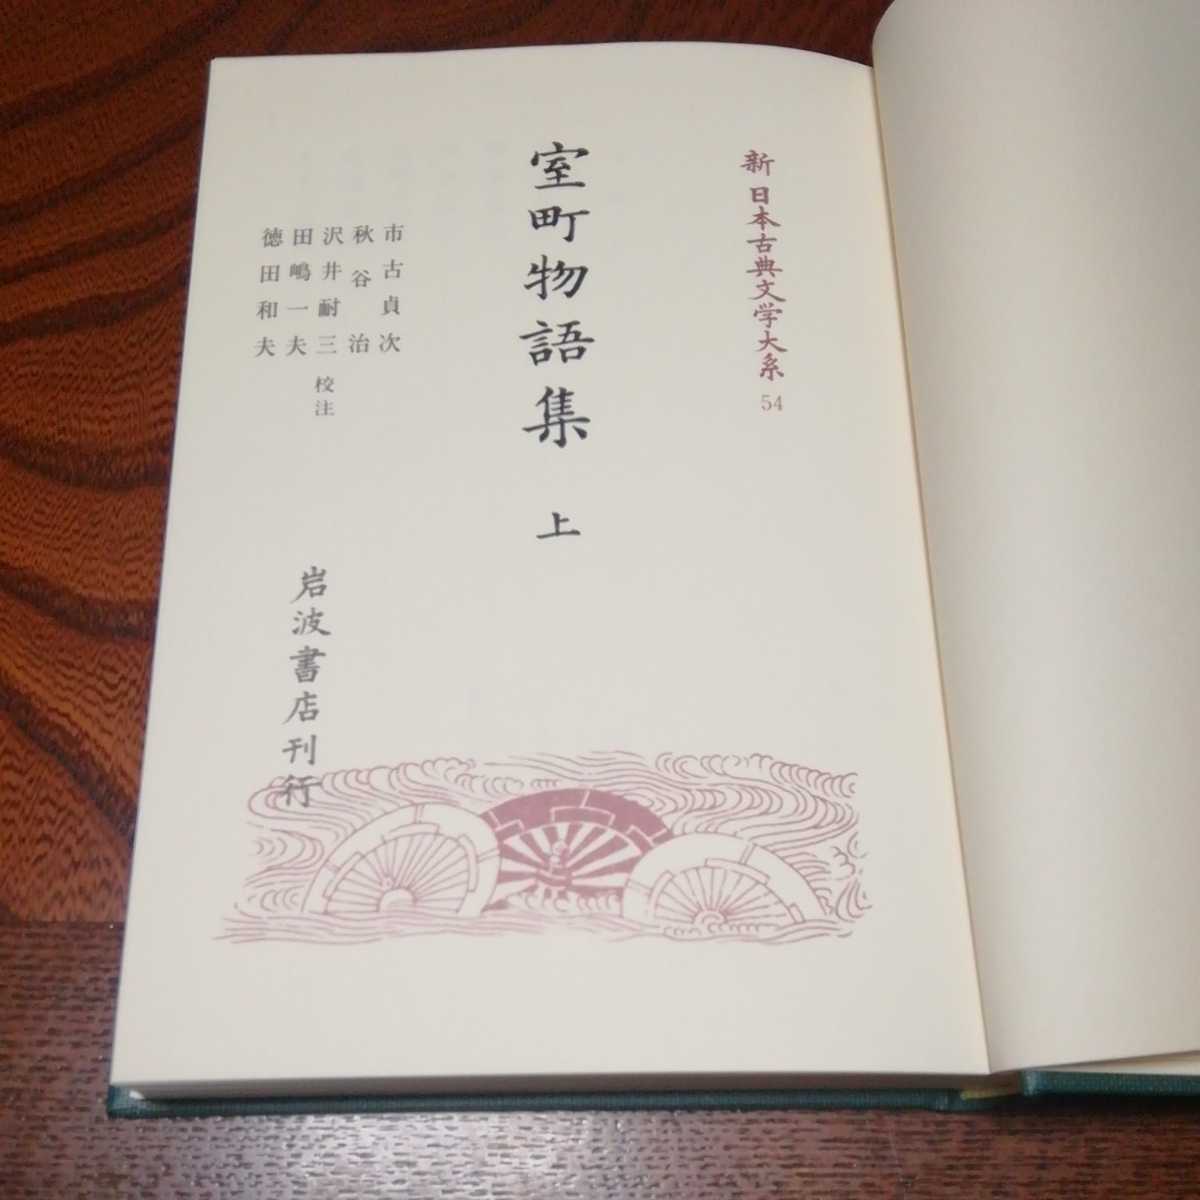 新日本古典文学大系 54
室町物語集 上
市古貞次
秋谷治
沢井耐三
田嶋一夫
徳田和夫
校注
岩波書店刊行